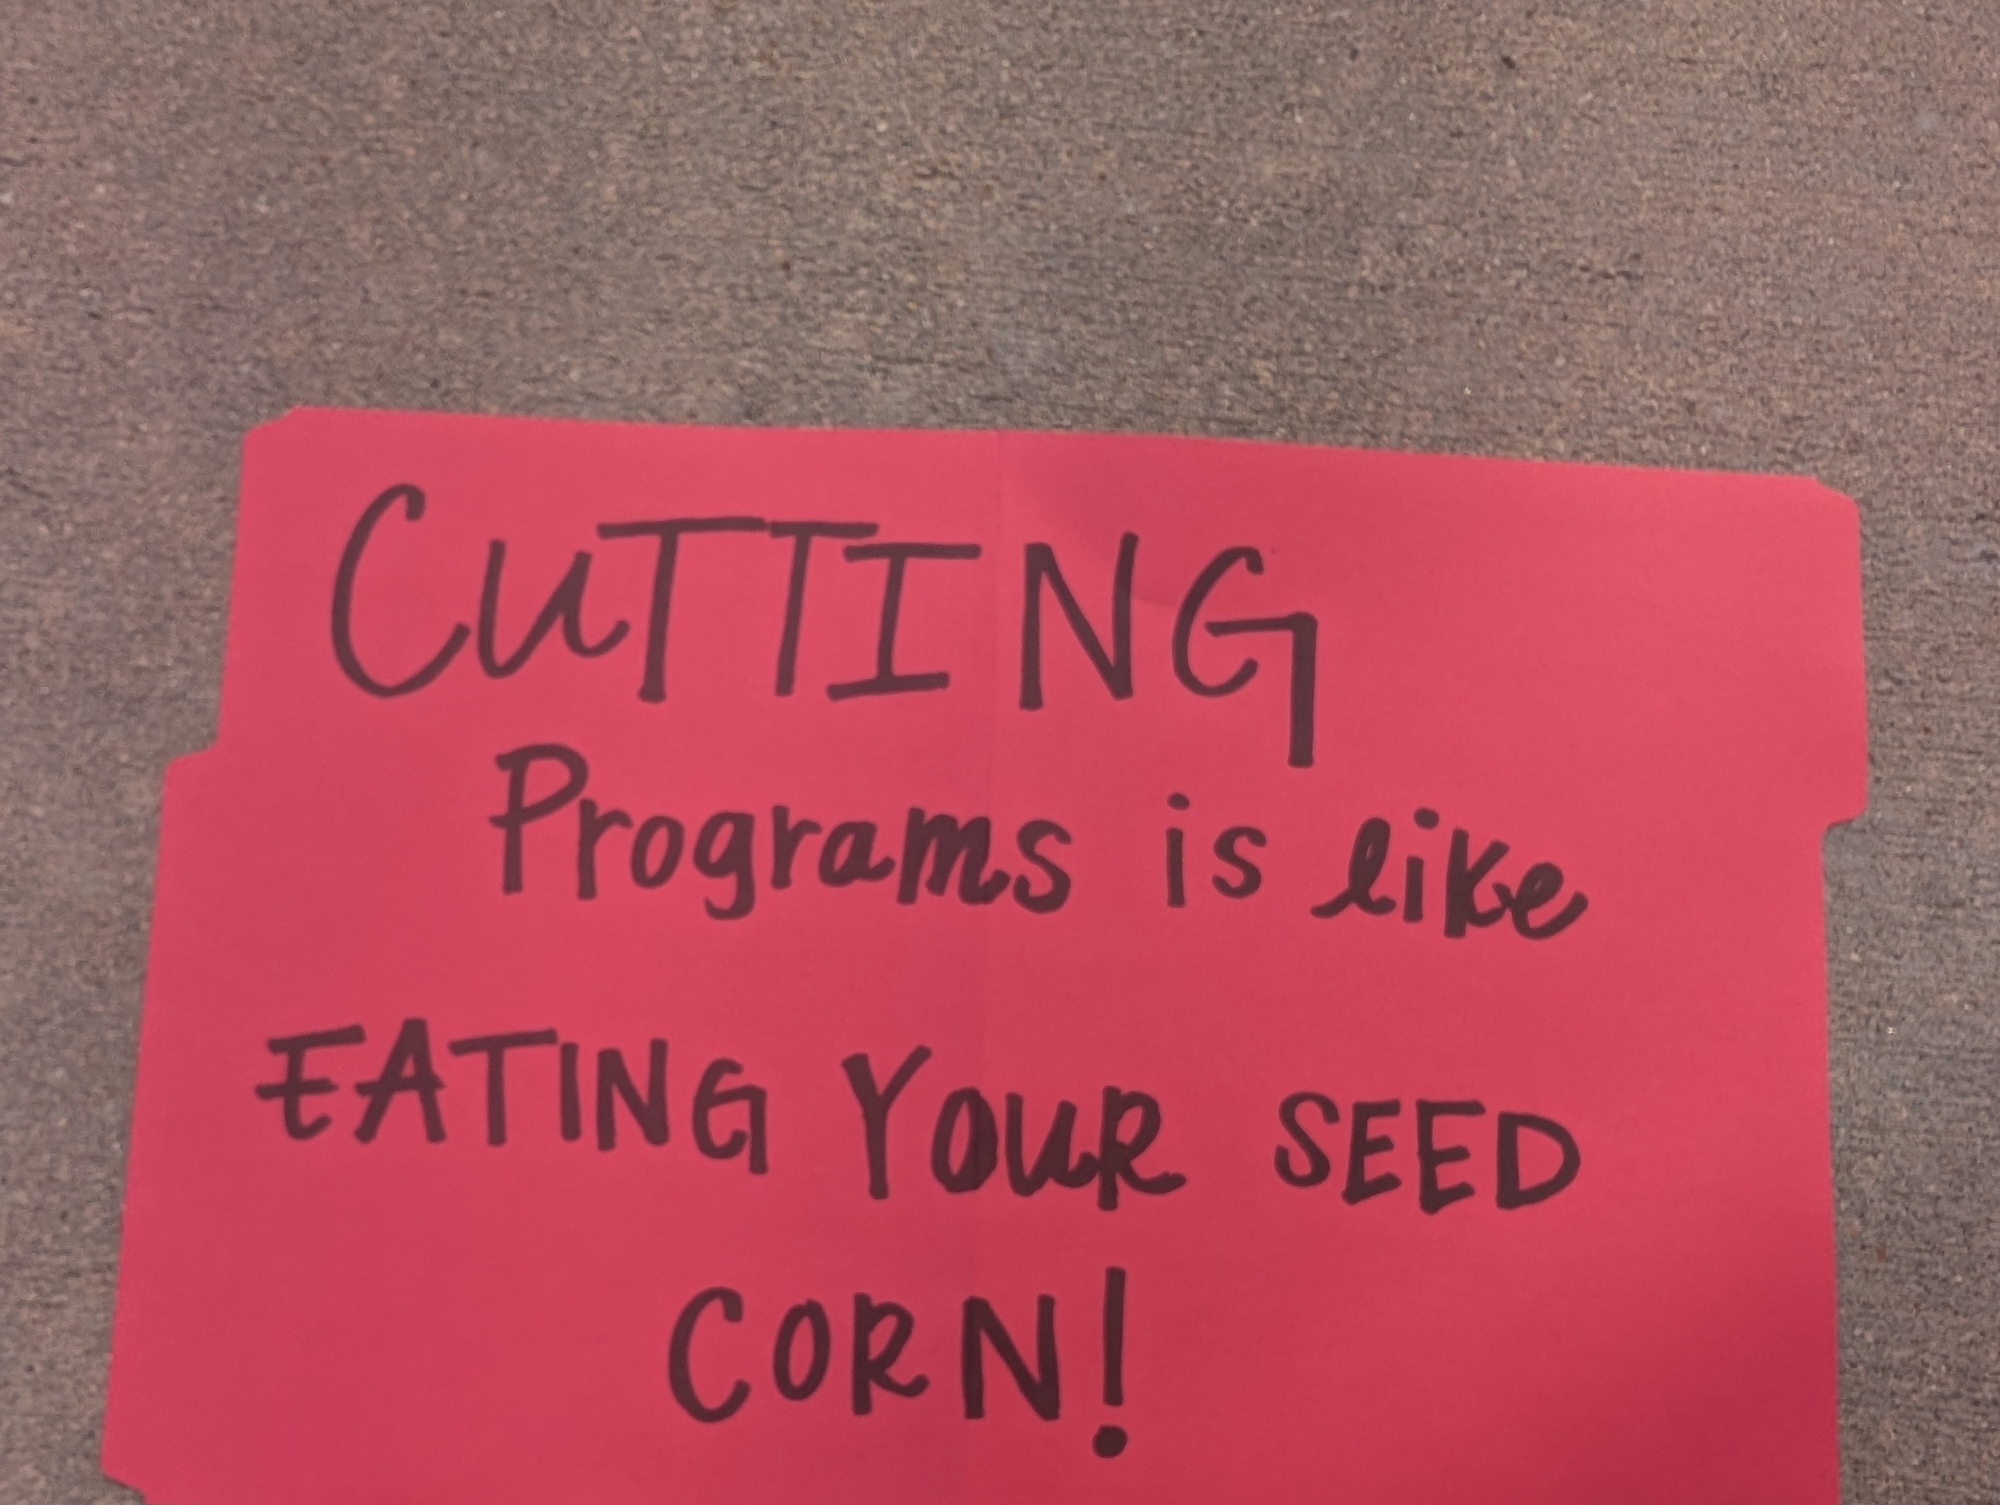 CuTTING
Programs is like
EATING YOUR SEED
CORN!